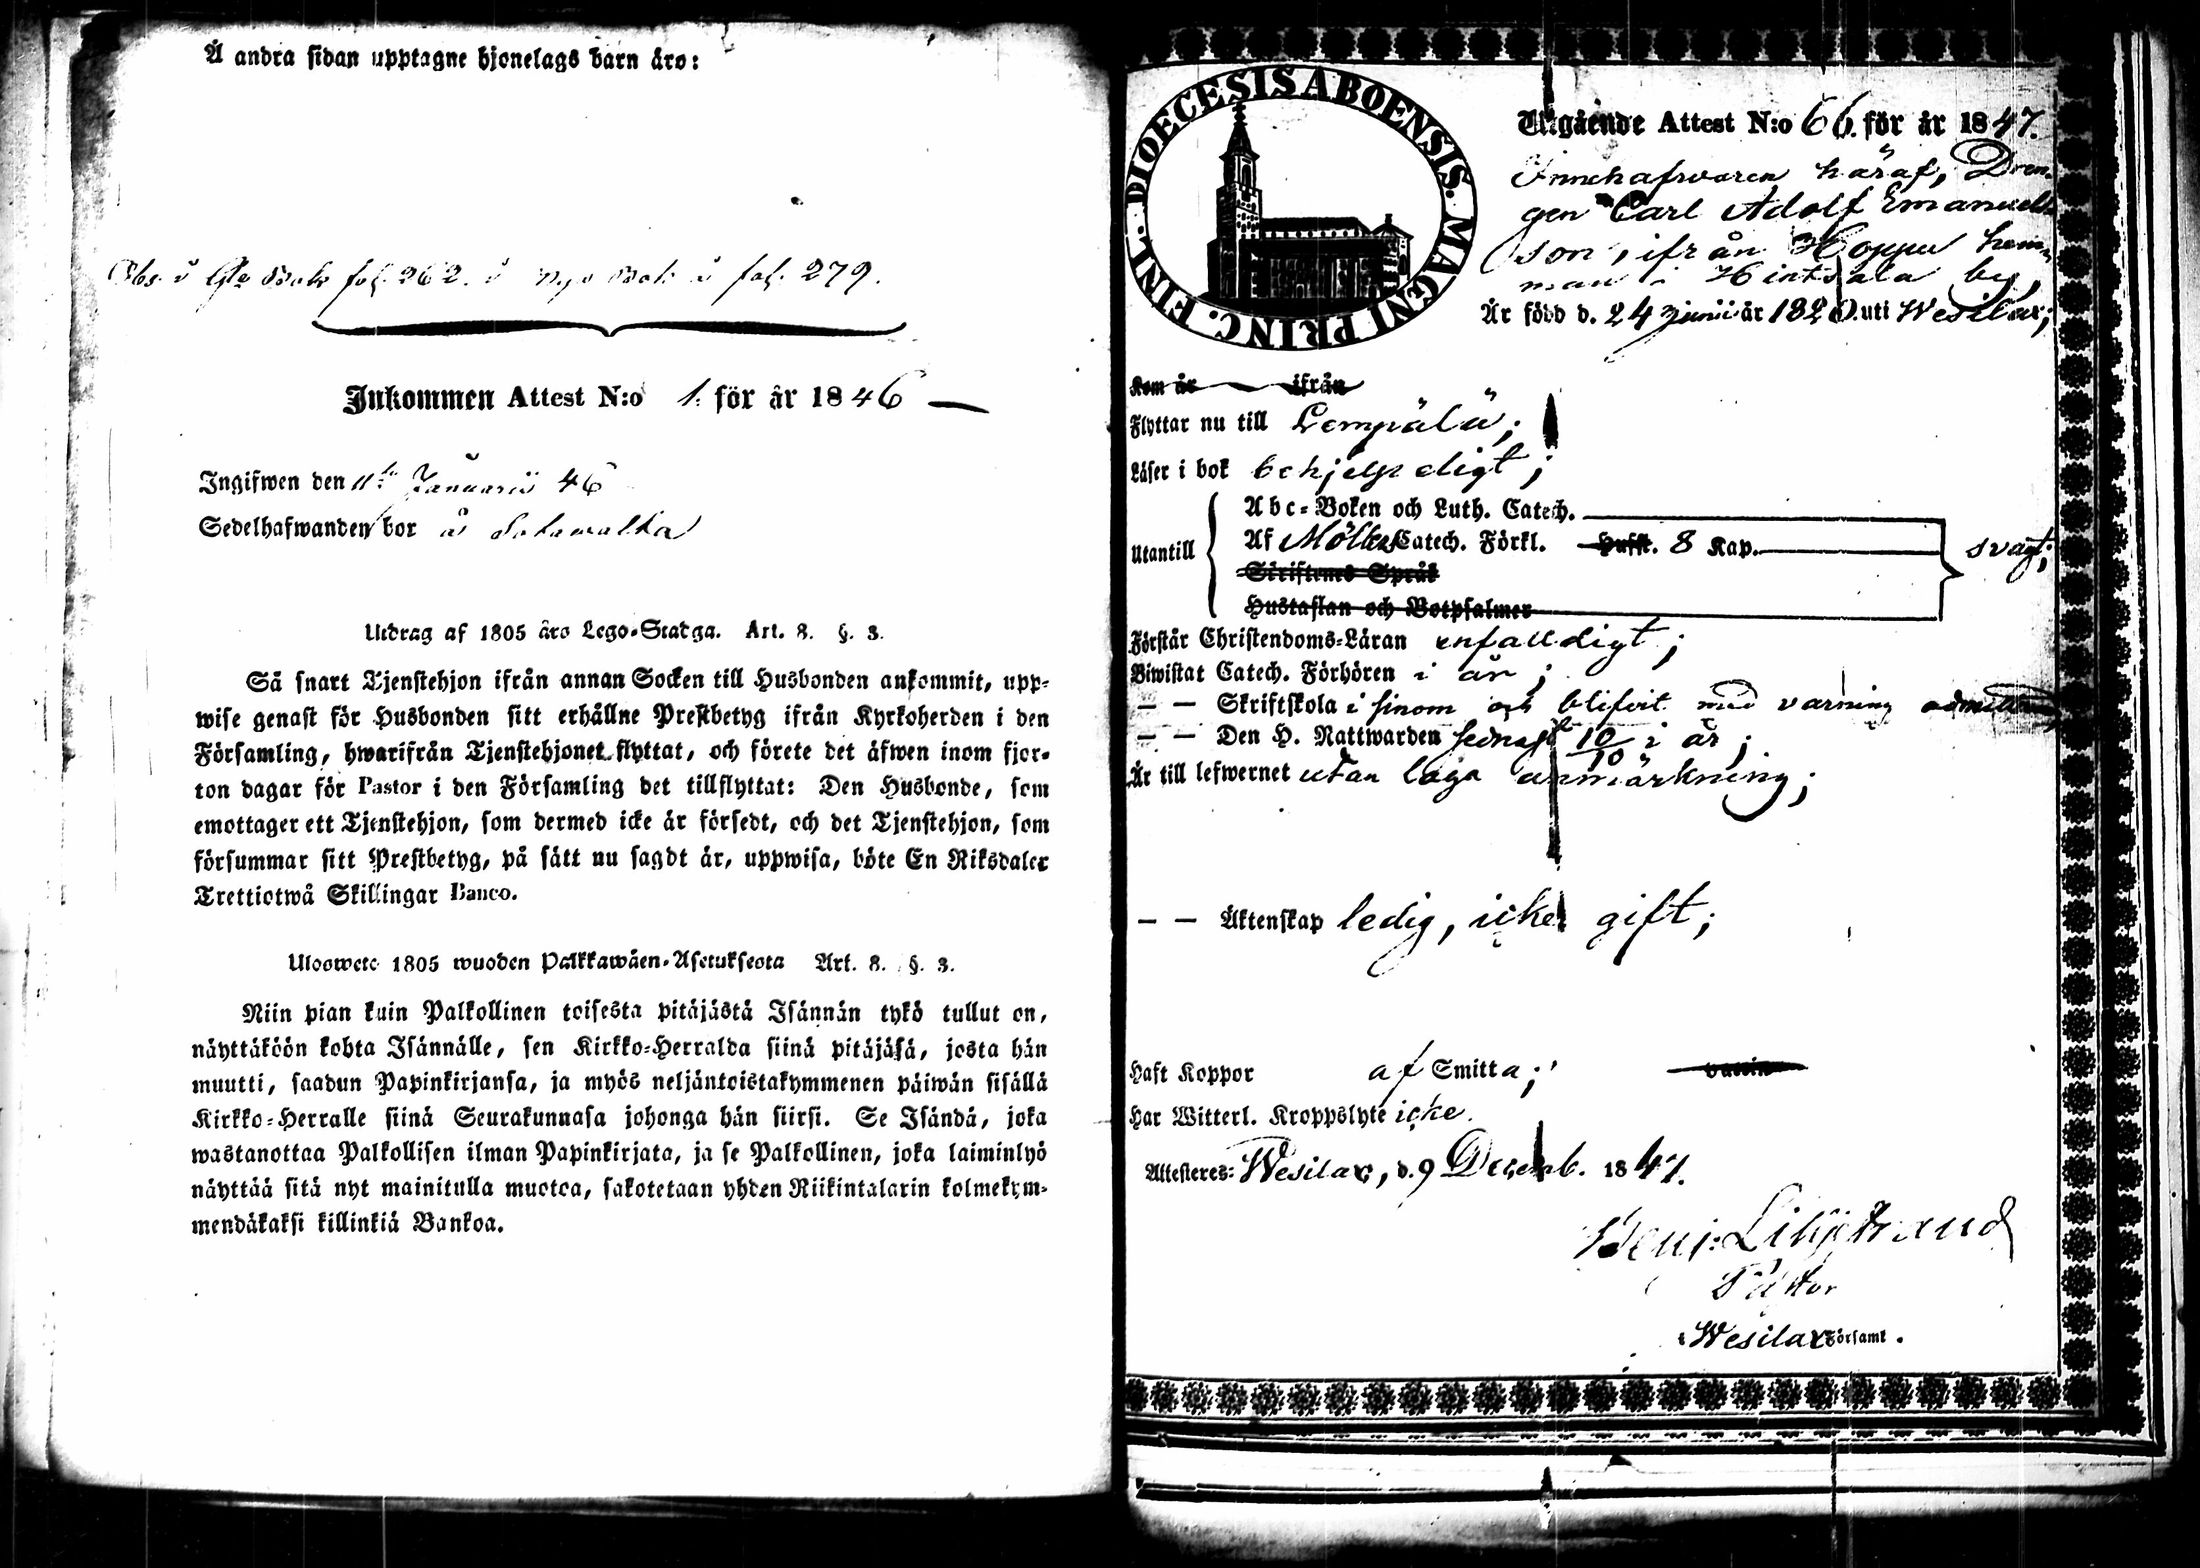 Å andra sidan upptagne hjonelags barn äro:
fol. 262. i nya Bok å fol. 279.
Inkommen Attest N:o 1. för år 1846
Ingifwen den 11te Januarii 46
Sedelhafwanden bor å
Utdrag af 1805 års Lego-Stadga. Art. 8. §. 3.
Så snart Tjenstehjon ifrån annan Socken till Husbonden ankommit, upp-
wise genast för Husbonden sitt erhållne Prestbetyg ifrån Kyrkoherden i den
Församling, hwarifrån Tjenstehjonet flyttat, och förete det äfwen inom fjor-
ton dagar för Pastor i den Församling det tillflyttat: Den Husbonde, som
emottager ett Tjenstehjon, som dermed icke är försedt, och det Tjenstehjon, som
försummar sitt Prestbetyg, på sätt nu sagdt är, uppwisa, böte En Riksdaler
Trettiotwå Skillingar Banco.
Uloswete 1805 wuoden Palkkawäen-Asetuksesta Art. 8. §. 3.
Niin pian kuin Palkollinen toisesta pitäjästä Isännän tykö tullut on,
näyttäköön kohta Isännälle, sen Kirkko-Herralda siinä pitäjäsä, josta hän
muutti, saadun Papinkirjansa, ja myös neljäntoistakymmenen päiwän sisällä
Kirkko-Herralle siinä Seurakunnasa johonga hän siirsi. Se Isändä, joka
wastanottaa Palkollisen ilman Papinkirjata, ja se Palkollinen, joka laiminlyö
näyttää sitä nyt mainitulla muotoa, sakotetaan yhden Riikintalarin kolmekym-
mendäkaksi killinkiä Bankoa.
DIOECESIS ABOENSIS. MAGNI PRINC. FINL.
Utgående Attest N:o 66. för år 1847.
Innehafwaren häraf, Dren-
gen Carl Adolf Emanuels-
son, ifrån Hoppu hem-
man i Hintsala by,
Är född d. 24 Junii år 1820. uti Wesilax;
Kom år ifrån
Flyttar nu till Lempälä;
Läser i bok behjelpeligt;
Abc-Boken och Luth. Catech.
Utantill Af Möllers Catech. Förkl. Hufst. 8 Kap. svagt;
Skriftenes Språk
Hustaflan och Botpsalmer
Förstår Christendoms-Läran enfalldigt;
Biwistat Catech. Förhören i år;
— — Skriftskola i sinom och blifvit med varning
— — Den H. Nattwarden sednast 10/10 i år;
Är till lefwernet utan laga anmärkning;
— — Äktenskap ledig, icke gift;
Haft Koppor af Smitta; vaccin
Har Witterl. Kroppslyte icke.
Attesteres: Wesilax, d. 9 Decemb. 1847.
Benj: Liljestrand
Pastor
i Wesilax Församl.